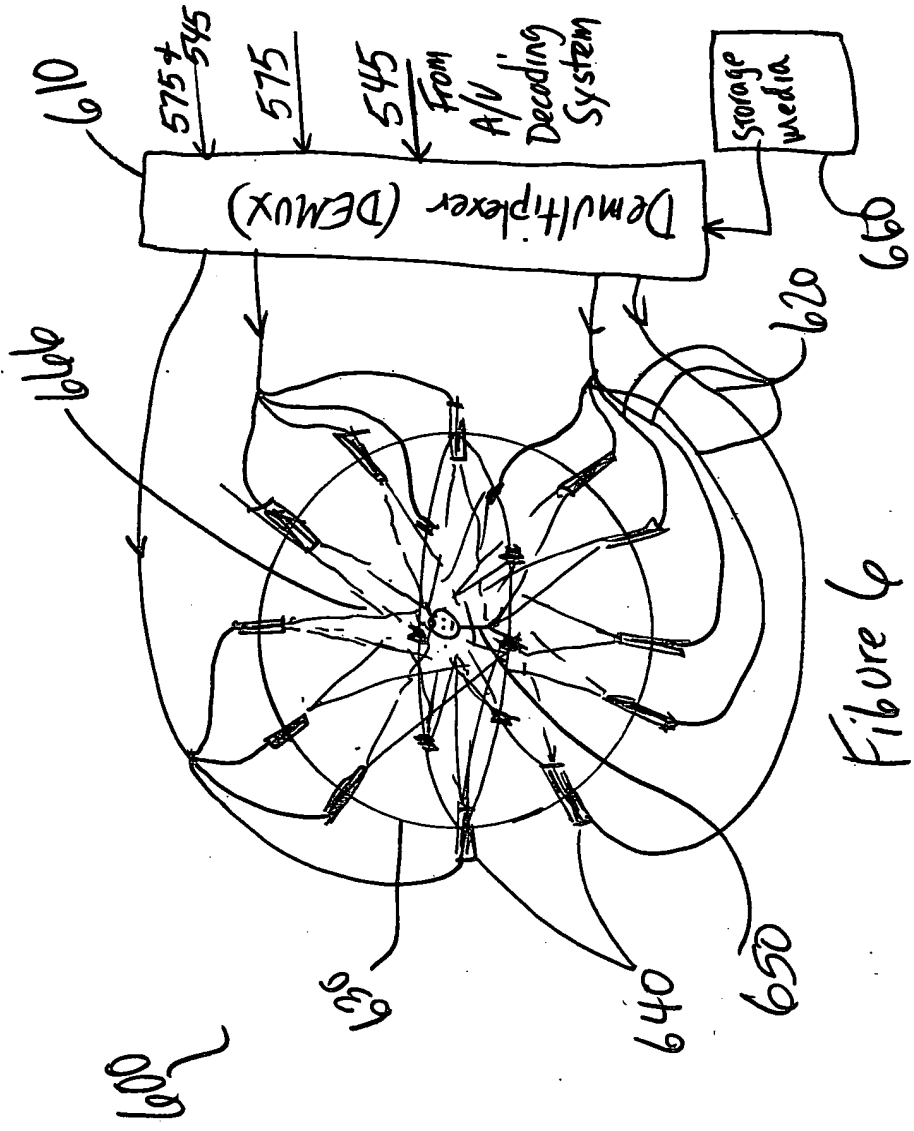 600
610
666
575+
545
575
545
From
A/V
Decoding
System
Demultiplexer (DEMUX)
Storage
Media
660
620
630
640
650
FiGure 6